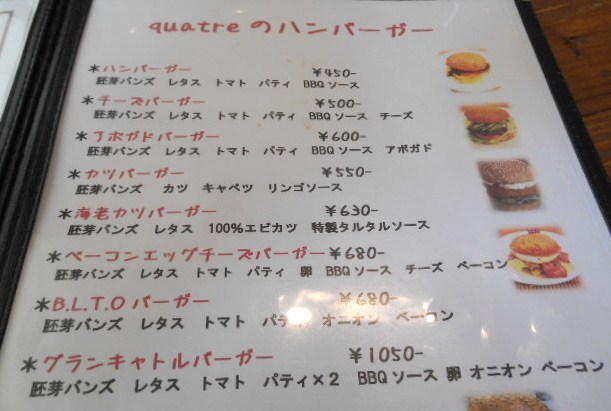 quatreのハンバーガー
＊ハンバーガー ￥450-
胚芽バンズ レタス トマト パティ BBQソース
＊チーズバーガー ￥500-
胚芽バンズ レタス トマト パティ BBQソース チーズ
＊アボガドバーガー ￥600-
胚芽バンズ レタス トマト パティ BBQソース アボガド
＊カツバーガー ￥550-
胚芽バンズ カツ キャベツ リンゴソース
＊海老カツバーガー ￥630-
胚芽バンズ レタス 100%エビカツ 特製タルタルソース
＊ベーコンエッグチーズバーガー ￥680-
胚芽バンズ レタス トマト パティ 卵 BBQソース チーズ ベーコン
＊B.L.T.Oバーガー ￥680-
胚芽バンズ レタス トマト パティ オニオン ベーコン
＊グランキャトルバーガー ￥1050-
胚芽バンズ レタス トマト パティ×2 BBQソース 卵 オニオン ベーコン